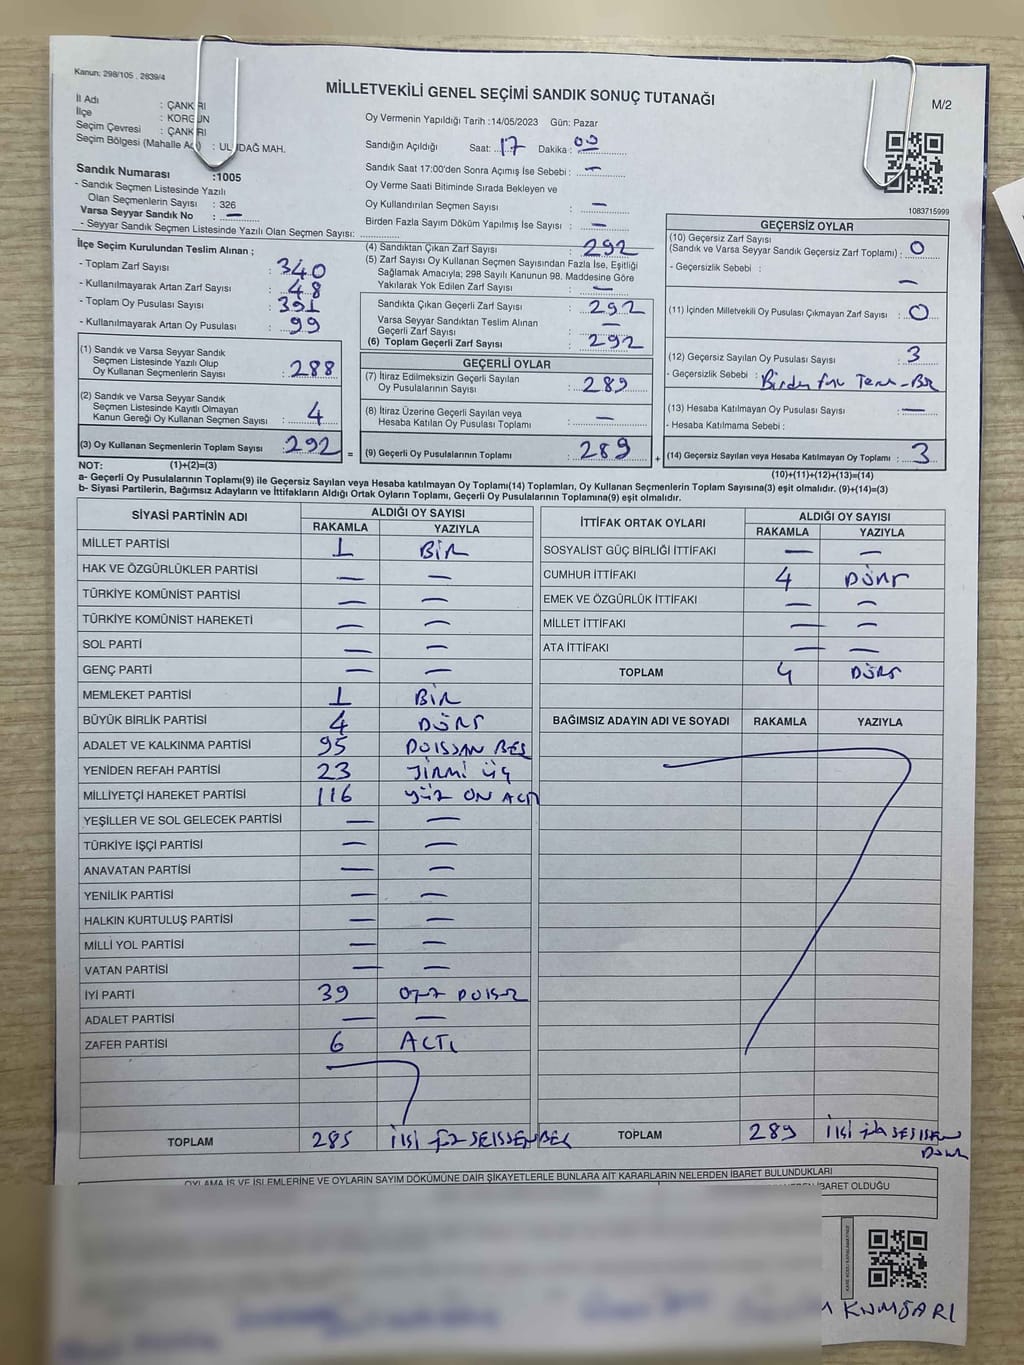 Kanun; 298/105 , 2839/4
MİLLETVEKİLİ GENEL SEÇİMİ SANDIK SONUÇ TUTANAĞI
M/2
İl Adı : ÇANKIRI
İlçe : KORGUN
Seçim Çevresi : ÇANKIRI
Seçim Bölgesi (Mahalle Adı) : ULUDAĞ MAH.
Oy Vermenin Yapıldığı Tarih :14/05/2023 Gün: Pazar
Sandığın Açıldığı Saat: 17 Dakika: 00
Sandık Saat 17:00'den Sonra Açımış İse Sebebi : —
Oy Verme Saati Bitiminde Sırada Bekleyen ve
Oy Kullandırılan Seçmen Sayısı : —
Birden Fazla Sayım Döküm Yapılmış İse Sayısı : —
1083715999
Sandık Numarası :1005
- Sandık Seçmen Listesinde Yazılı
Olan Seçmenlerin Sayısı : 326
Varsa Seyyar Sandık No : —
- Seyyar Sandık Seçmen Listesinde Yazılı Olan Seçmen Sayısı:
İlçe Seçim Kurulundan Teslim Alınan ;
- Toplam Zarf Sayısı : 340
- Kullanılmayarak Artan Zarf Sayısı : 48
- Toplam Oy Pusulası Sayısı : 391
- Kullanılmayarak Artan Oy Pusulası : 99
(1) Sandık ve Varsa Seyyar Sandık
Seçmen Listesinde Yazılı Olup
Oy Kullanan Seçmenlerin Sayısı : 288
(2) Sandık ve Varsa Seyyar Sandık
Seçmen Listesinde Kayıtlı Olmayan
Kanun Gereği Oy Kullanan Seçmen Sayısı : 4
(3) Oy Kullanan Seçmenlerin Toplam Sayısı : 292 =
(4) Sandıktan Çıkan Zarf Sayısı : 292
(5) Zarf Sayısı Oy Kullanan Seçmen Sayısından Fazla İse, Eşitliği
Sağlamak Amacıyla; 298 Sayılı Kanunun 98. Maddesine Göre
Yakılarak Yok Edilen Zarf Sayısı : —
Sandıkta Çıkan Geçerli Zarf Sayısı : 292
Varsa Seyyar Sandıktan Teslim Alınan
Geçerli Zarf Sayısı : —
(6) Toplam Geçerli Zarf Sayısı : 292
GEÇERLİ OYLAR
(7) İtiraz Edilmeksizin Geçerli Sayılan
Oy Pusulalarının Sayısı : 289
(8) İtiraz Üzerine Geçerli Sayılan veya
Hesaba Katılan Oy Pusulası Toplamı : —
(9) Geçerli Oy Pusulalarının Toplamı : 289 +
GEÇERSİZ OYLAR
(10) Geçersiz Zarf Sayısı
(Sandık ve Varsa Seyyar Sandık Geçersiz Zarf Toplamı) : 0
- Geçersizlik Sebebi :
—
(11) İçinden Milletvekili Oy Pusulası Çıkmayan Zarf Sayısı : 0
(12) Geçersiz Sayılan Oy Pusulası Sayısı : 3
- Geçersizlik Sebebi :
(13) Hesaba Katılmayan Oy Pusulası Sayısı : —
- Hesaba Katılmama Sebebi :
(14) Geçersiz Sayılan veya Hesaba Katılmayan Oy Toplamı : 3
NOT: (1)+(2)=(3)
(10)+(11)+(12)+(13)=(14)
a- Geçerli Oy Pusulalarının Toplamı(9) ile Geçersiz Sayılan veya Hesaba katılmayan Oy Toplamı(14) Toplamları, Oy Kullanan Seçmenlerin Toplam Sayısına(3) eşit olmalıdır. (9)+(14)=(3)
b- Siyasi Partilerin, Bağımsız Adayların ve İttifakların Aldığı Ortak Oyların Toplamı, Geçerli Oy Pusulalarının Toplamına(9) eşit olmalıdır.
SİYASİ PARTİNİN ADI ALDIĞI OY SAYISI
RAKAMLA YAZIYLA
MİLLET PARTİSİ 1 BİR
HAK VE ÖZGÜRLÜKLER PARTİSİ — —
TÜRKİYE KOMÜNİST PARTİSİ — —
TÜRKİYE KOMÜNİST HAREKETİ — —
SOL PARTİ — —
GENÇ PARTİ — —
MEMLEKET PARTİSİ 1 BİR
BÜYÜK BİRLİK PARTİSİ 4 DÖRT
ADALET VE KALKINMA PARTİSİ 95 DOKSAN BEŞ
YENİDEN REFAH PARTİSİ 23 YİRMİ ÜÇ
MİLLİYETÇİ HAREKET PARTİSİ 116 YÜZ ON ALTI
YEŞİLLER VE SOL GELECEK PARTİSİ — —
TÜRKİYE İŞÇİ PARTİSİ — —
ANAVATAN PARTİSİ — —
YENİLİK PARTİSİ — —
HALKIN KURTULUŞ PARTİSİ — —
MİLLİ YOL PARTİSİ — —
VATAN PARTİSİ — —
İYİ PARTİ 39 OTUZ DOKUZ
ADALET PARTİSİ — —
ZAFER PARTİSİ 6 ALTI
TOPLAM 285 İKİ YÜZ SEKSEN BEŞ
İTTİFAK ORTAK OYLARI ALDIĞI OY SAYISI
RAKAMLA YAZIYLA
SOSYALİST GÜÇ BİRLİĞİ İTTİFAKI — —
CUMHUR İTTİFAKI 4 DÖRT
EMEK VE ÖZGÜRLÜK İTTİFAKI — —
MİLLET İTTİFAKI — —
ATA İTTİFAKI — —
TOPLAM 4 DÖRT
BAĞIMSIZ ADAYIN ADI VE SOYADI RAKAMLA YAZIYLA
TOPLAM 289 İKİ YÜZ SEKSEN
OYLAMA İŞ VE İŞLEMLERİNE VE OYLARIN SAYIM DÖKÜMÜNE DAİR ŞİKAYETLERLE BUNLARA AİT KARARLARIN NELERDEN İBARET BULUNDUKLARI
İBARET OLDUĞU